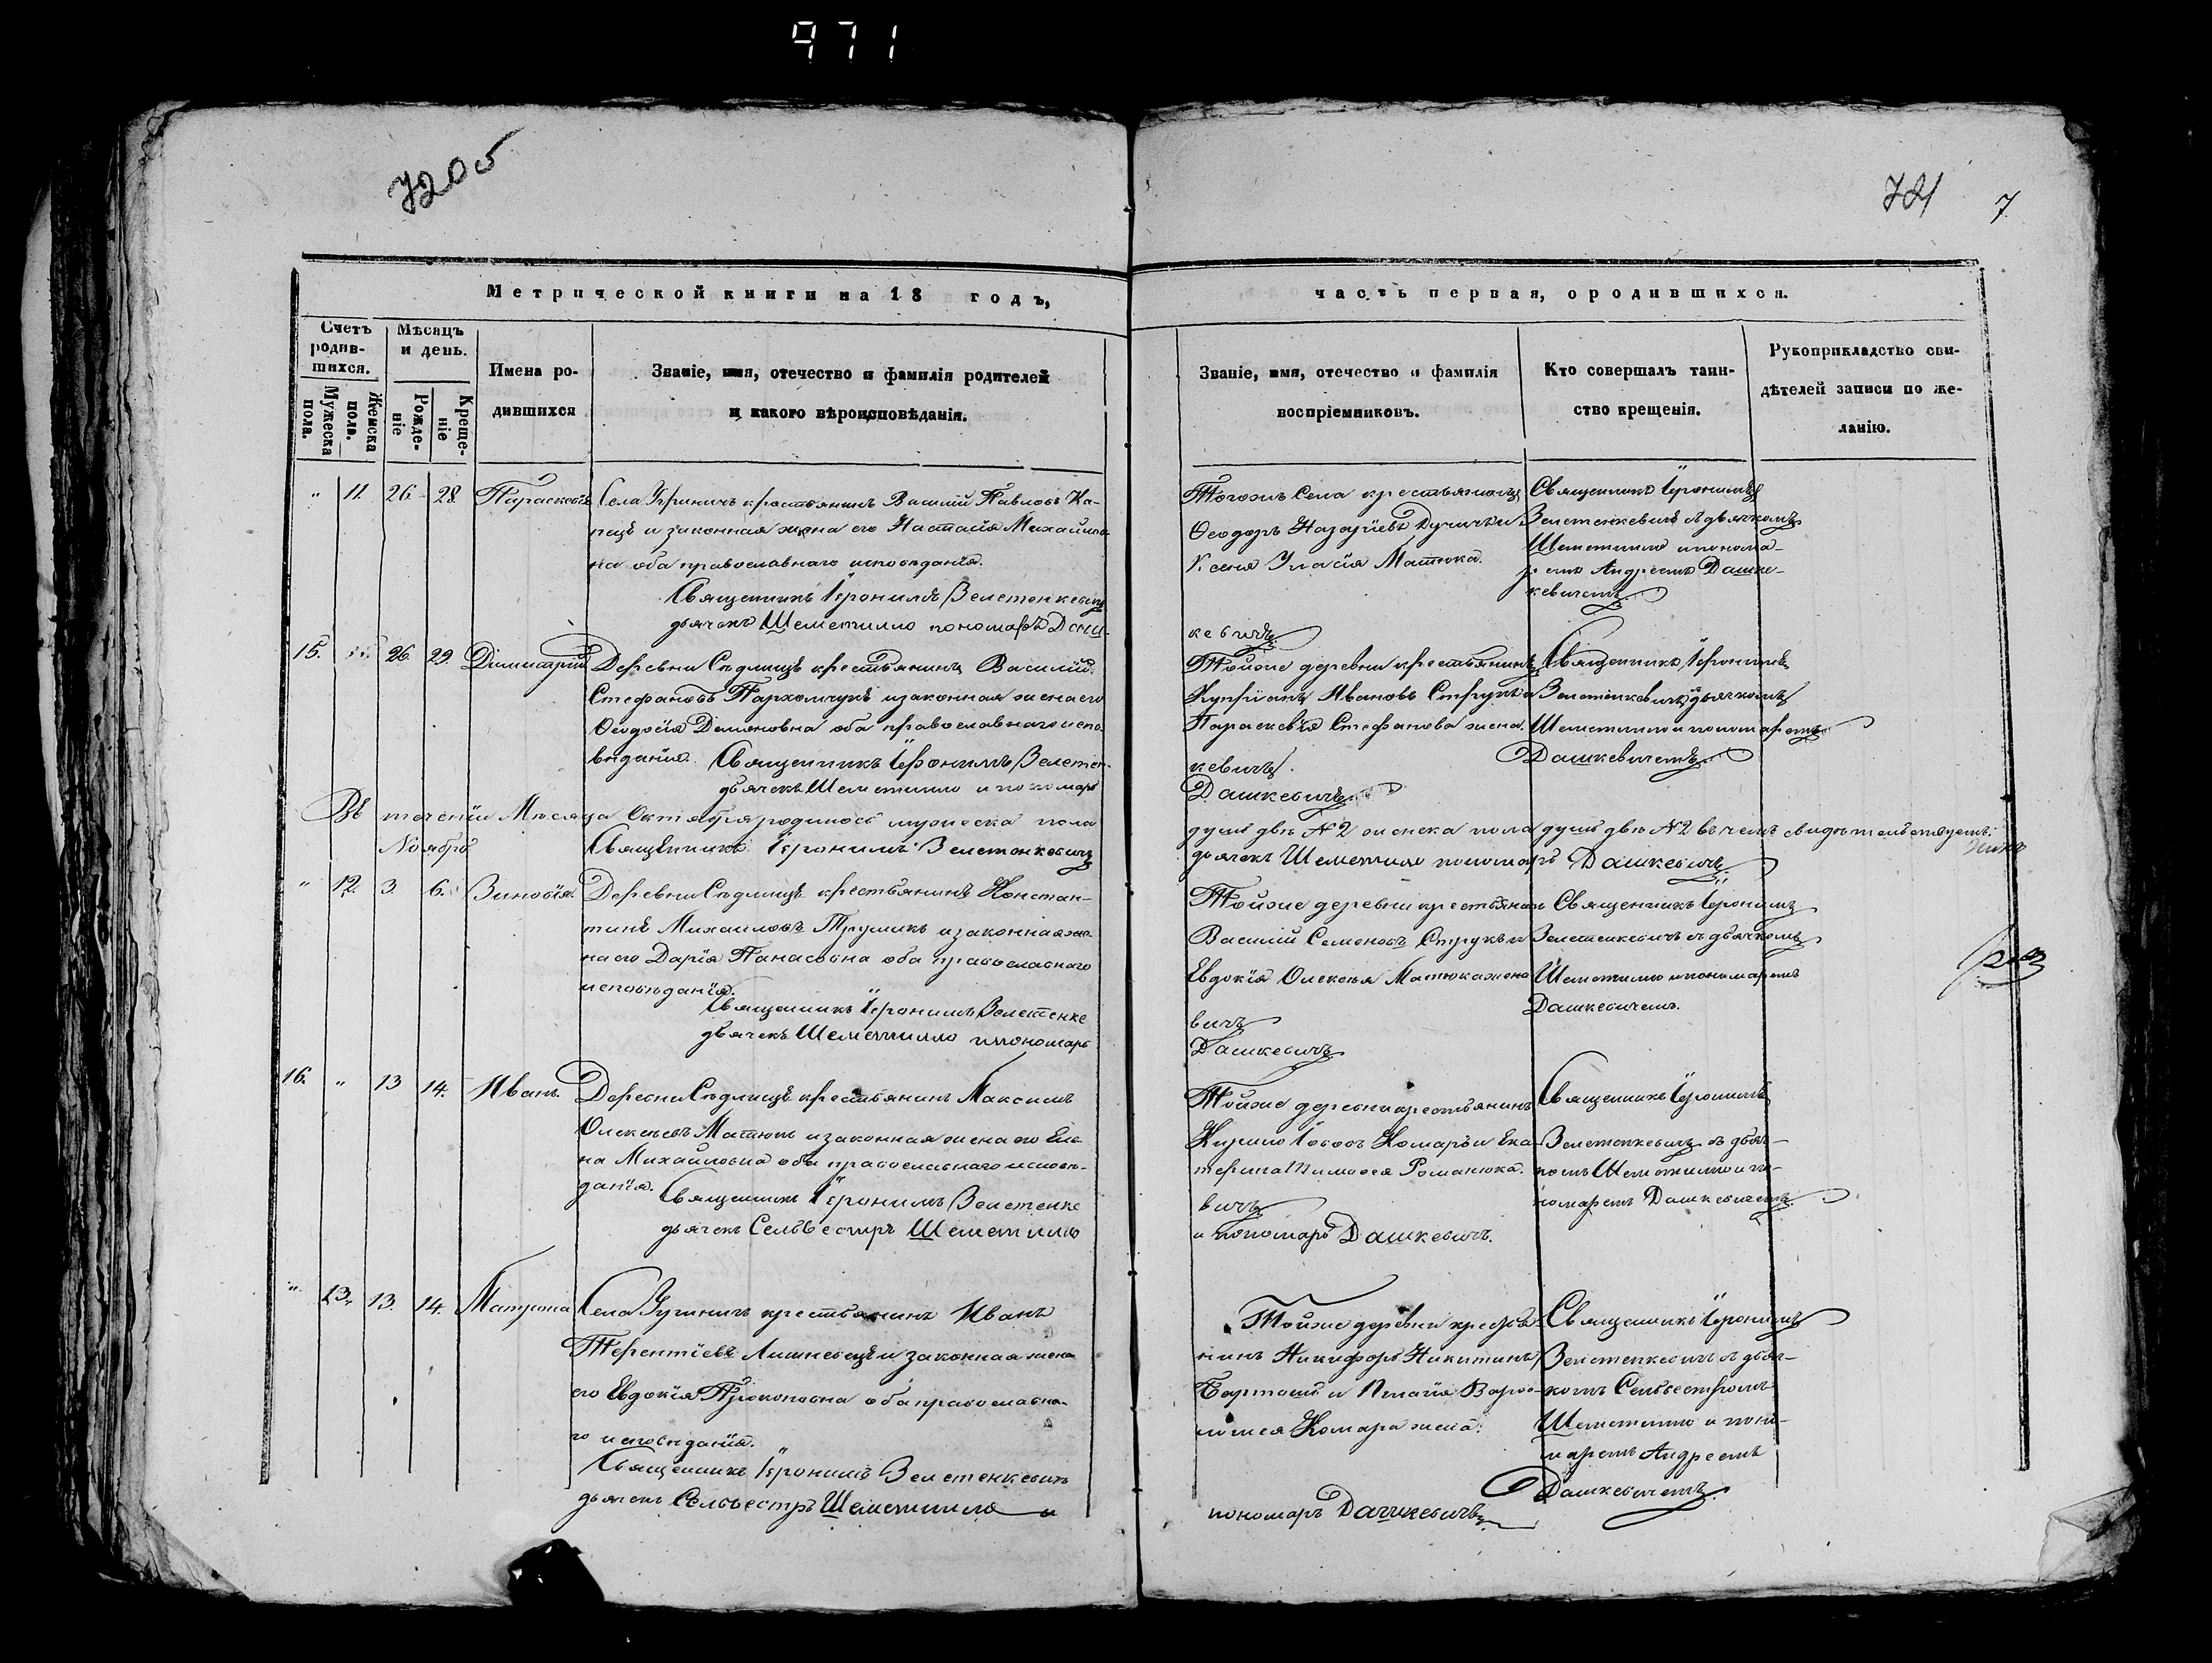 971
720 об
721 7
Метрической книги на 18 годъ,
часть первая, о родившихся.
Счетъ родив-шихся.
Мужеска пола.
Женска пола.
Мѣсяцъ и день.
Рожде-ніе
Креще-ніе
Имена ро-
дившихся
Званіе, имя, отечество и фамилія родителей
и какого вѣроисповѣданія.
Званіе, имя, отечество и фамилія
воспріемниковъ.
Кто совершалъ таин-
ство крещенія.
Рукоприкладство сви-
дѣтелей записи по же-
ланію.
" 11. 26. 28. Параскевія
Села Угриничъ крестьянинъ Василій Павловъ Ка-
пецъ и законная жена его Настасія Михайлов-
на оба православнаго исповѣданія.
Священникъ Іеронимъ Зелетенкевичъ
дьячекъ Шеметилло пономаръ Даш-
Тогожъ села крестьянинъ
Ѳеодоръ Назаріевъ и
Ксенія Матюка.
кевичъ
Священникъ Іеронимъ
Зелетенкевичъ съ дьячкомъ
Шеметилло и понома-
ремъ Андреемъ Дашке-
кевичемъ
15. " 26. 29. Димитрій
Деревни Сѣдлищъ крестьянинъ Василій
Стефановъ Пархомчукъ и законная жена его
Ѳеодосія Демяновна оба православнаго испо-
вѣданія. Священникъ Іеронимъ Зелетен-
дьячекъ Шеметилло и пономарь
Тойже деревни крестьянинъ
Купріянъ Ивановъ Струкъ и
Параскевія Стефанова жена.
кевичъ.
Дашкевичъ
Священникъ Іеронимъ
Зелетенкевичъ съ дьячкомъ
Шеметилло и пономаремъ
Дашкевичемъ
Въ теченіи Мѣсяца Октября родилось мужеска пола
душъ двѣ №2 женска пола душъ двѣ №2 въ чемъ свидѣтельствуемъ:
Ноябрь
Священникъ Іеронимъ Зелетенкевичъ
дьячекъ Шеметилло пономарь Дашкевичъ
" 12. 3. 6. Зиновія.
Деревни Сѣдлищъ крестьянинъ Констан-
тинъ Михаиловъ Трумикъ и законная же-
на его Дарія Панасовна оба православнаго
исповѣданія.
Священникъ Іеронимъ Зелетенке
дьячекъ Шеметилло и пономарь
Тойже деревни крестьянинъ
Василій Семеновъ Струкъ и
Евдокія Олексѣя Матюка жена
вичъ
Дашкевичъ
Священникъ Іеронимъ
Зелетенкевичъ съ дьячкомъ
Шеметилло и пономаремъ
Дашкевичемъ.
16. " 13 14. Иванъ.
Деревни Сѣдлищъ крестьянинъ Максимъ
Олексѣевъ Матюкъ и законная жена его Еле-
на Михайловна оба православнаго исповѣ-
данія. Священникъ Іеронимъ Зелетенке
дьячекъ Сельвестръ Шеметилло
Тойже деревни крестьянинъ
Кирило Іововъ Комаръ и Ека-
терина Тимоѳея Романюка.
вичъ
и пономарь Дашкевичъ.
Священникъ Іеронимъ
Зелетенкевичъ съ дьяч-
комъ Шеметилло и по-
номаремъ Дашкевичемъ
" 13. 13. 14. Матрона
Села Угриничъ крестьянинъ Иванъ
Терентіевъ Лишневецъ и законная жена
его Евдокія Прокоповна оба православна-
го исповѣданія.
Священникъ Іеронимъ Зелетенкевичъ
дьячекъ Сельвестръ Шеметилло и
Тойже деревни крестья-
нинъ Никифоръ Никитинъ
Барташъ и Пелагія Варѳо-
ломея Комара жена.
пономарь Дашкевичъ
Священникъ Іеронимъ
Зелетенкевичъ съ дьяч-
комъ Сельвестромъ
Шеметилло и поно-
маремъ Андреемъ
Дашкевичемъ.